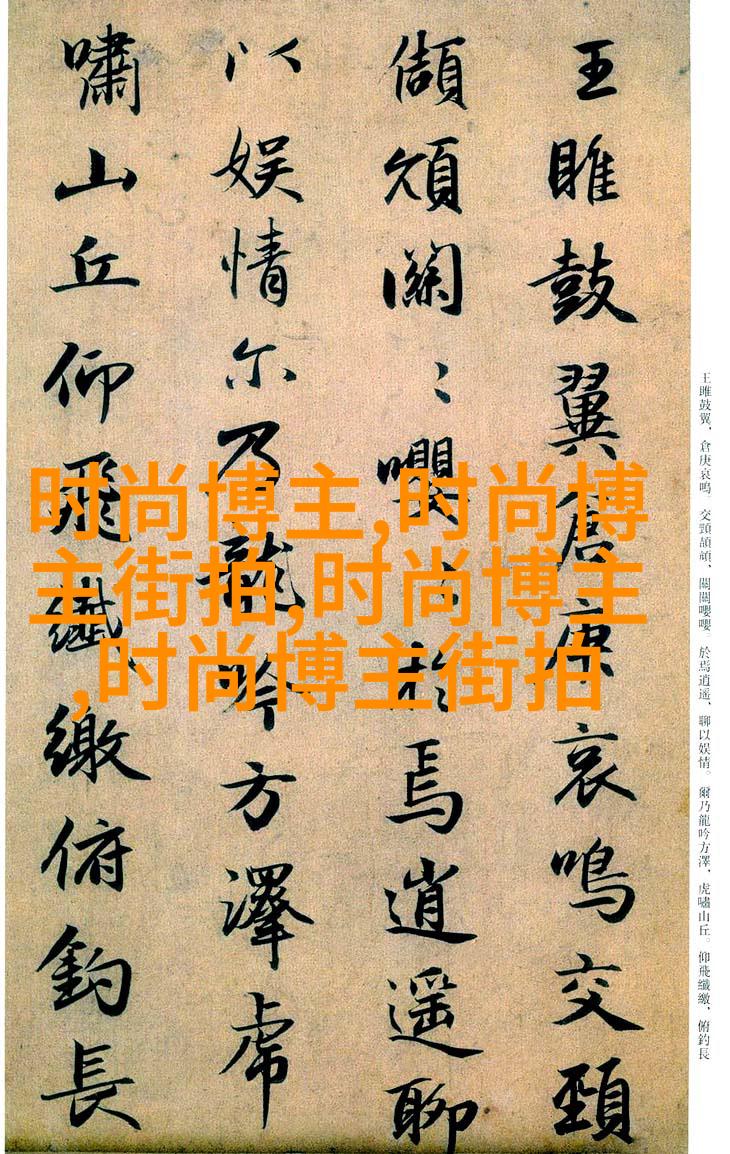 王雎鼓翼倉庚哀鳴交頸
頡頏關〻嚶〻於焉逍遥聊
以娱情尓乃龍吟方澤虎
嘯山丘仰飛纖繳俯釣長
时尚博主,时尚博
主街拍,时尚博主
,时尚博主街拍
王雎鼓翼、倉庚哀鳴。交頸頡頏、關關嚶嚶。於焉逍遥、聊以娱情。爾乃龍吟方澤、虎嘯山丘。仰飛纖繳、俯釣長